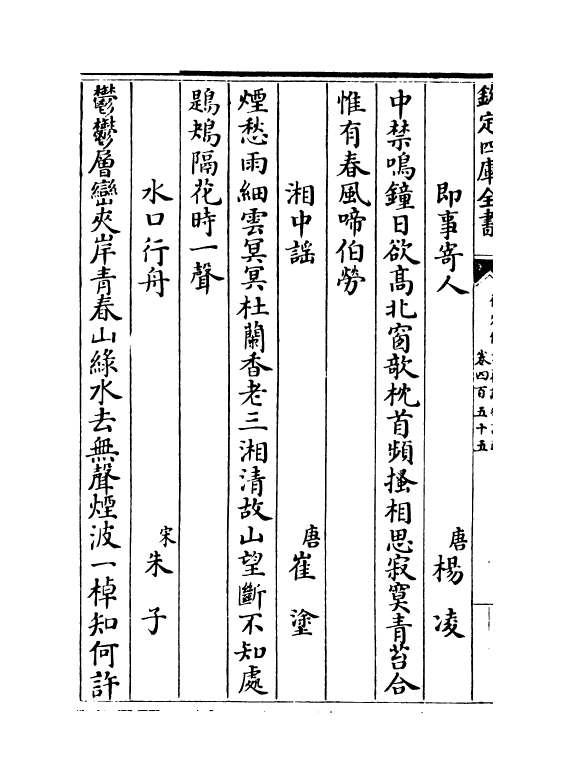 欽定四庫全書
卷四百五十五
即事寄人 唐 楊凌
中禁鳴鐘日欲高北窗欹枕首頻搔相思寂寞青苔合
惟有春風啼伯勞
湘中謡 唐 崔塗
煙愁雨細雲冥冥杜蘭香老三湘清故山望斷不知處
鶗鴂隔花時一聲
水口行舟 宋 朱子
鬱鬱層巒夾岸青春山綠水去無聲煙波一棹知何許